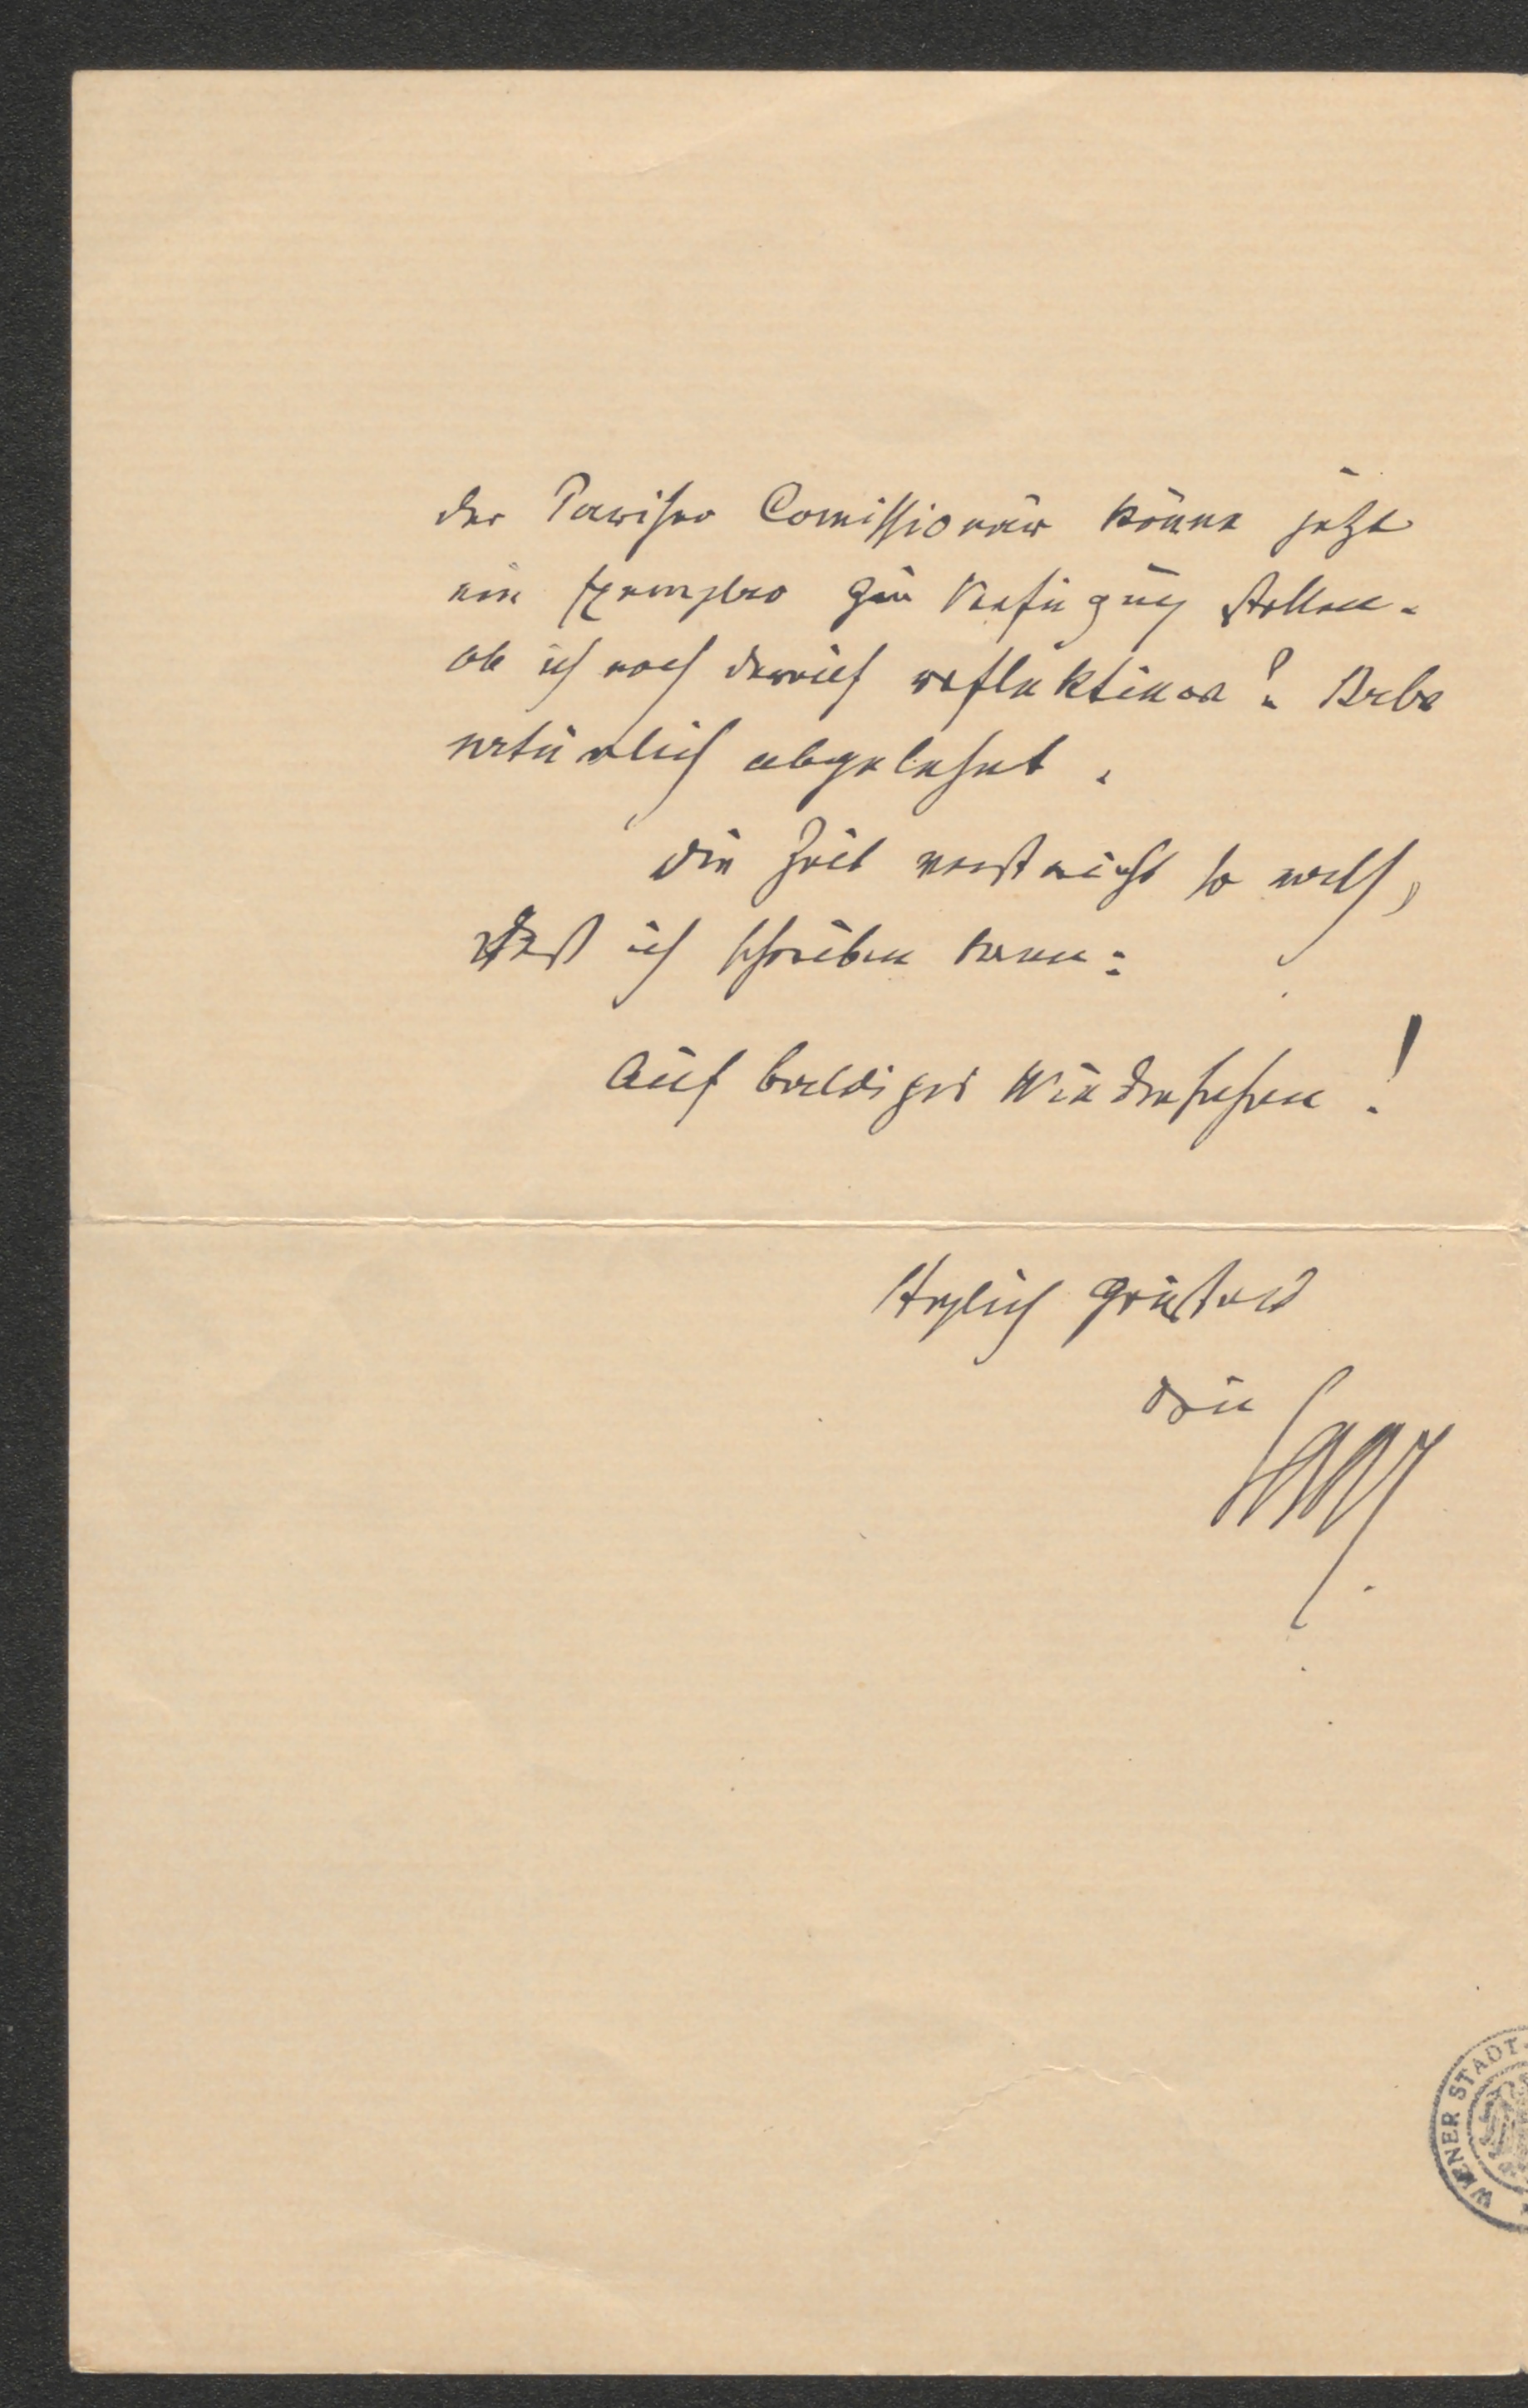 der Pariser Comissionär könne jetzt
ein Exemplar zur Verfügung stellen.
ob ich noch darauf reflektiere? Habe
natürlich abgelehnt.
Die Zeit nicht so rasch,
daß ich schreiben kann:
Auf baldiges Wiedersehen!
Herzlich grüßend
Dein
Saar.
WIENER STADT-